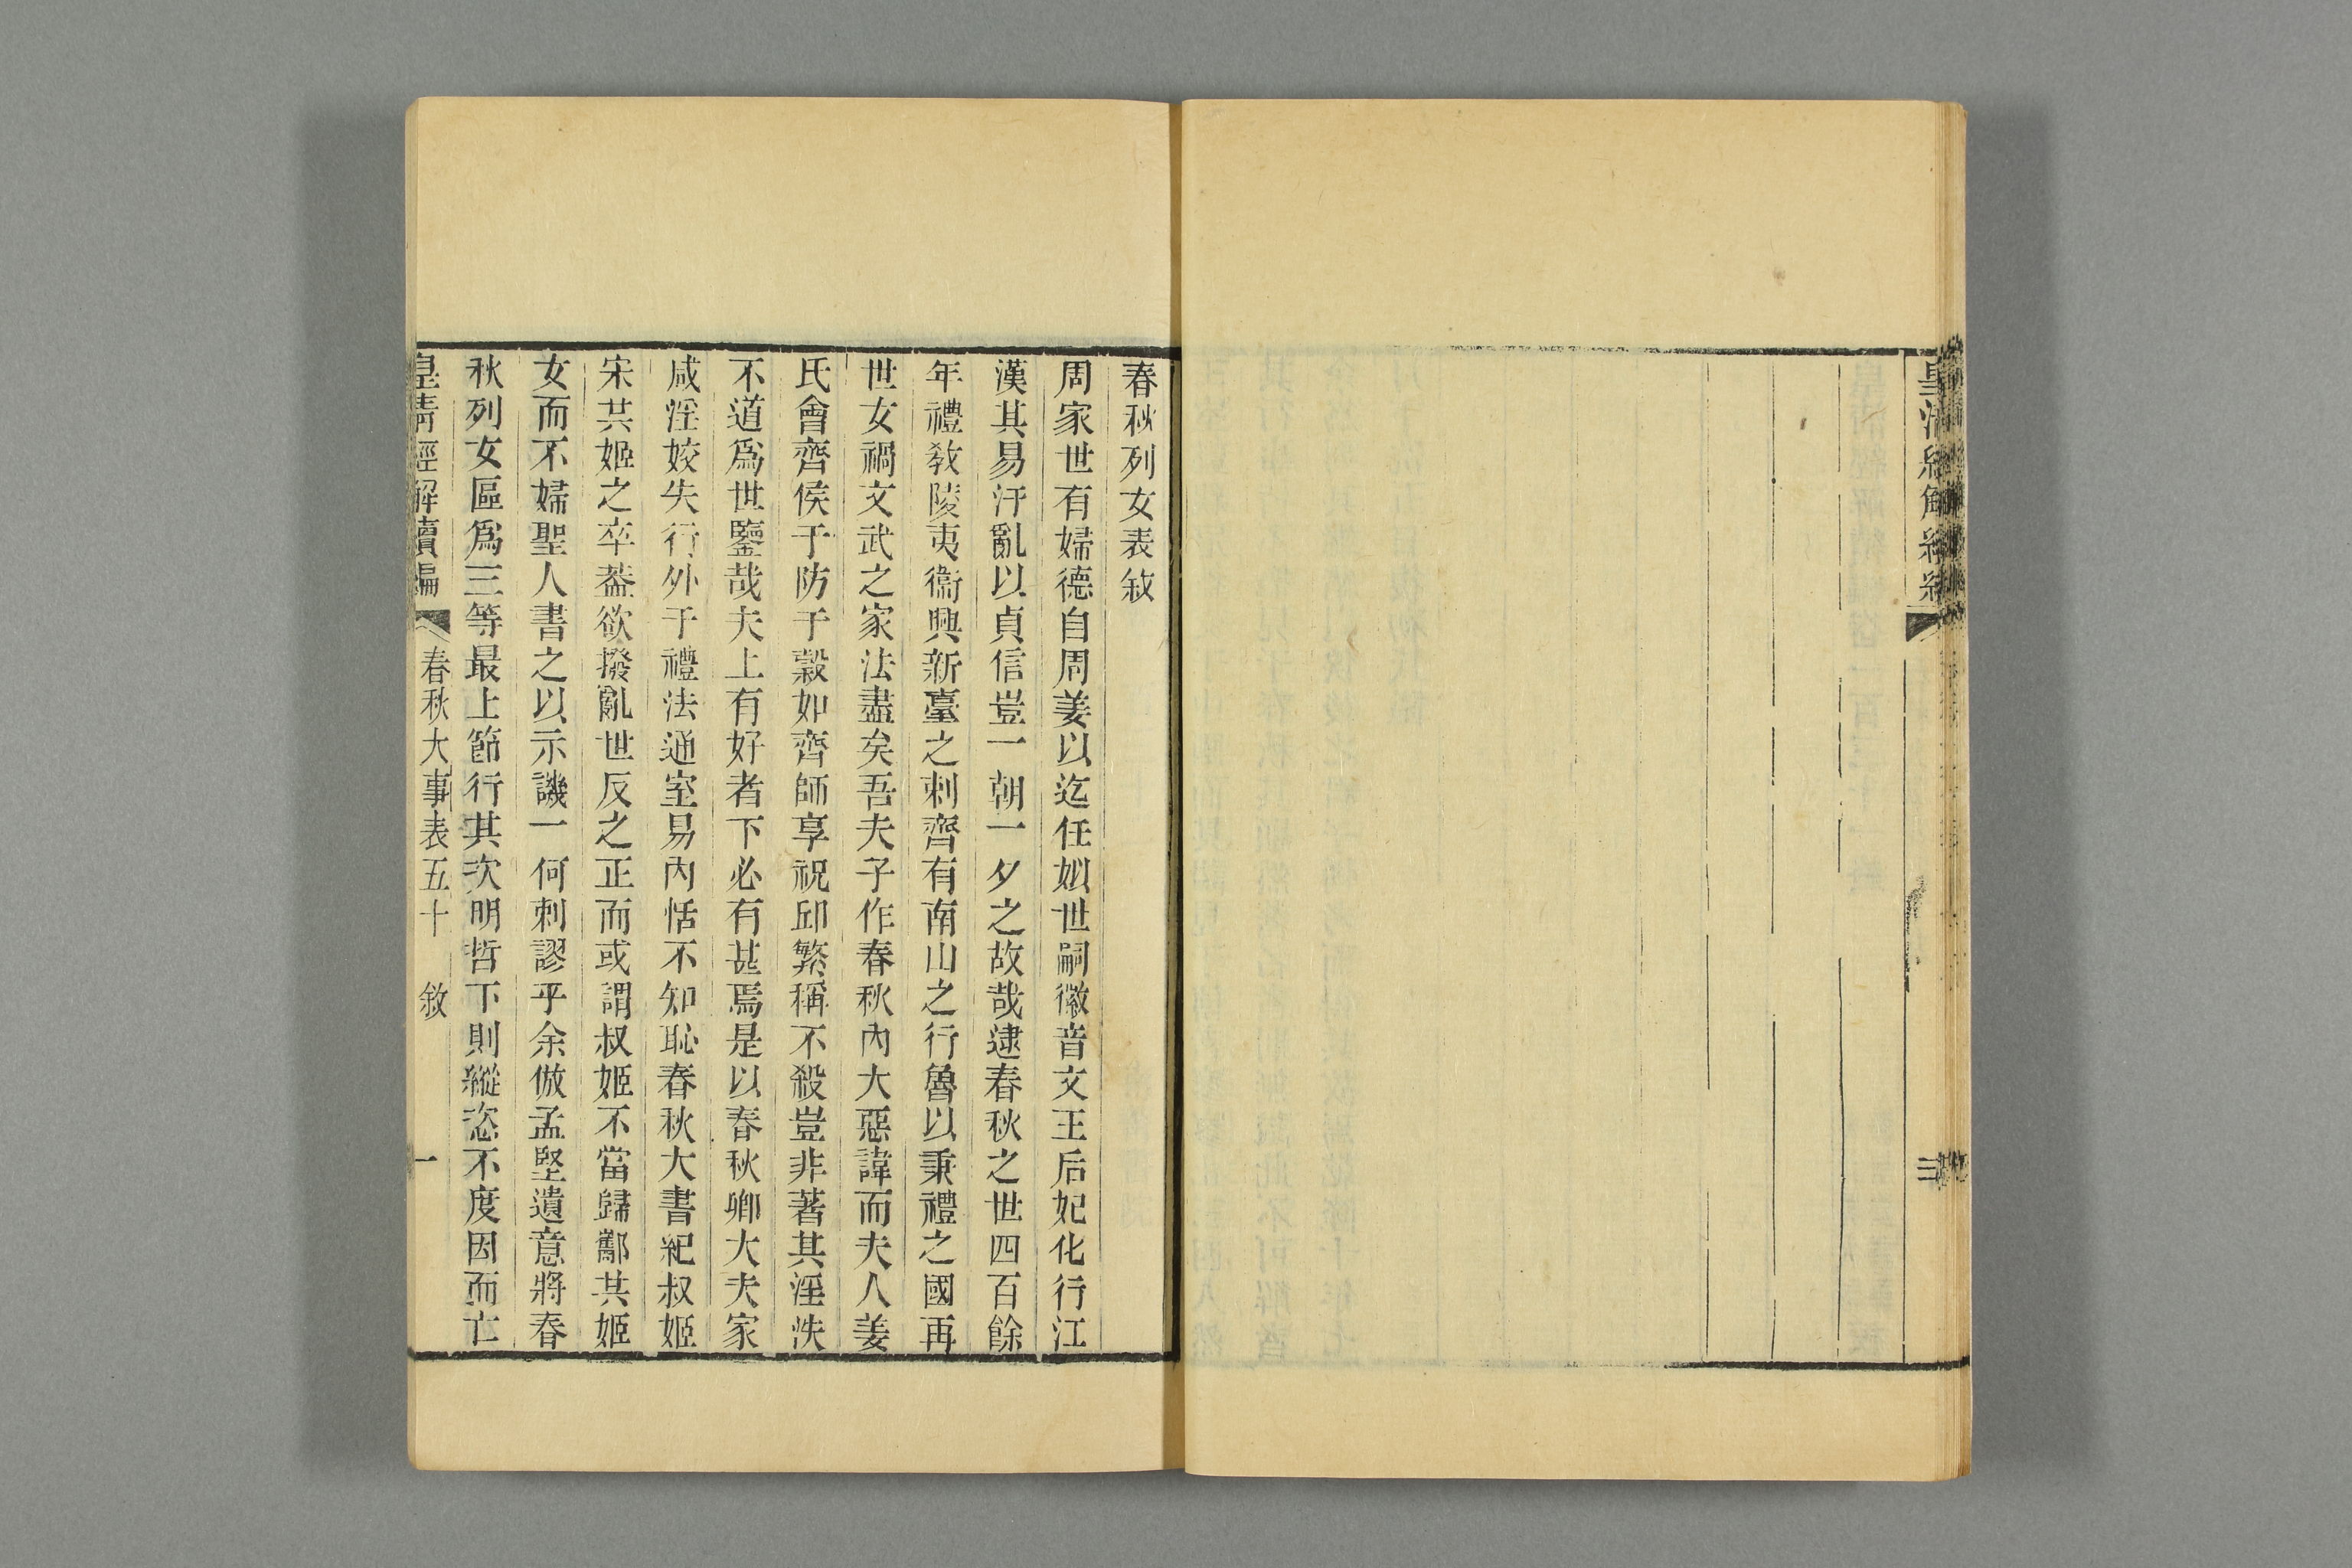 皇清經解續編
三
春秋列女表敘
周家世有婦德自周姜以迄任姒世嗣徽音文王后妃化行江
漢其易汙亂以貞信豈一朝一夕之故哉逮春秋之世四百餘
年禮敎陵夷衞興新臺之刺齊有南山之行魯以秉禮之國再
世女禍文武之家法盡矣吾夫子作春秋內大惡諱而夫人姜
氏會齊侯于防于糓如齊師享祝邱繁稱不殺豈非著其淫泆
不道爲世鑒哉夫上有好者下必有甚焉是以春秋卿大夫家
咸淫姣失行外于禮法通室易內恬不知恥春秋大書紀叔姬
宋共姬之卒葢欲撥亂世反之正而或謂叔姬不當歸酅共姬
女而不婦聖人書之以示譏一何刺謬乎余倣孟堅遺意將春
秋列女區爲三等最上節行其次明哲下則縱恣不度因而亡
皇清經解續編
春秋大事表五十
敘
一